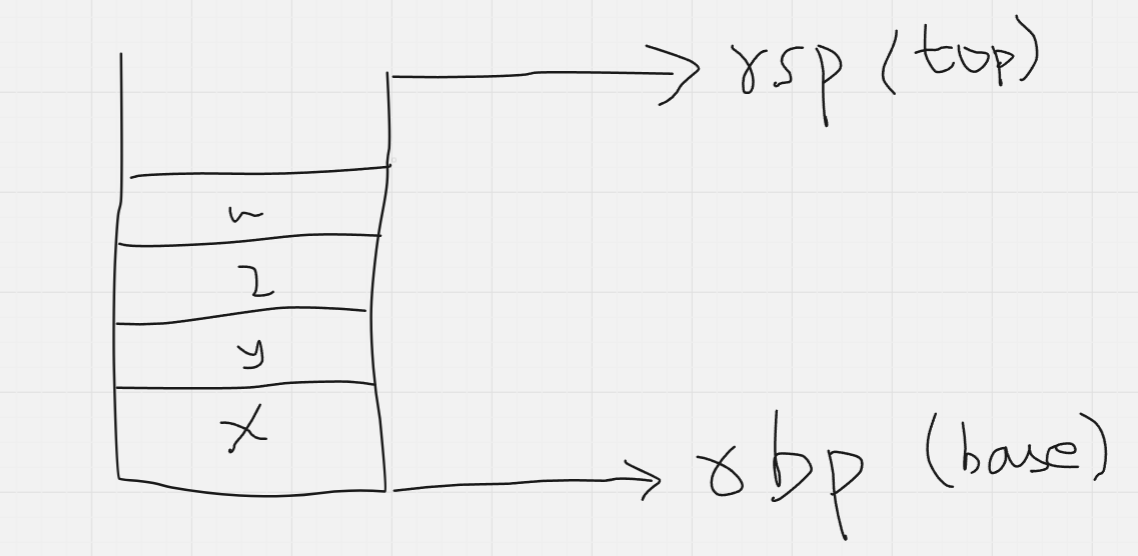 rsp (top)
z
y
x
rbp (base)